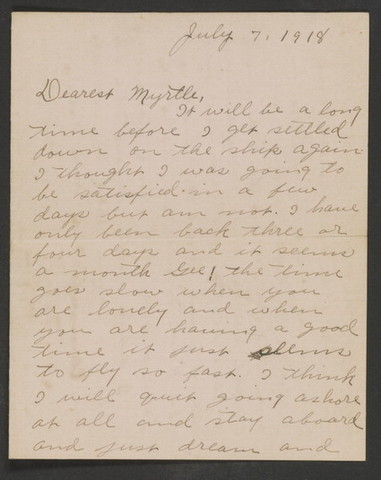 July 7, 1918
Dearest Myrtle,
It will be a long
time before I get settled
down on the ship again
I thought I was going to
be satisfied in a few
days but am not. I have
only been back three or
four days and it seems
a month Gee! the time
goes slow when you
are lonely and when
you are having a good
time it just seems
to fly so fast. I think
I will quit going ashore
at all and stay aboard
and just dream and